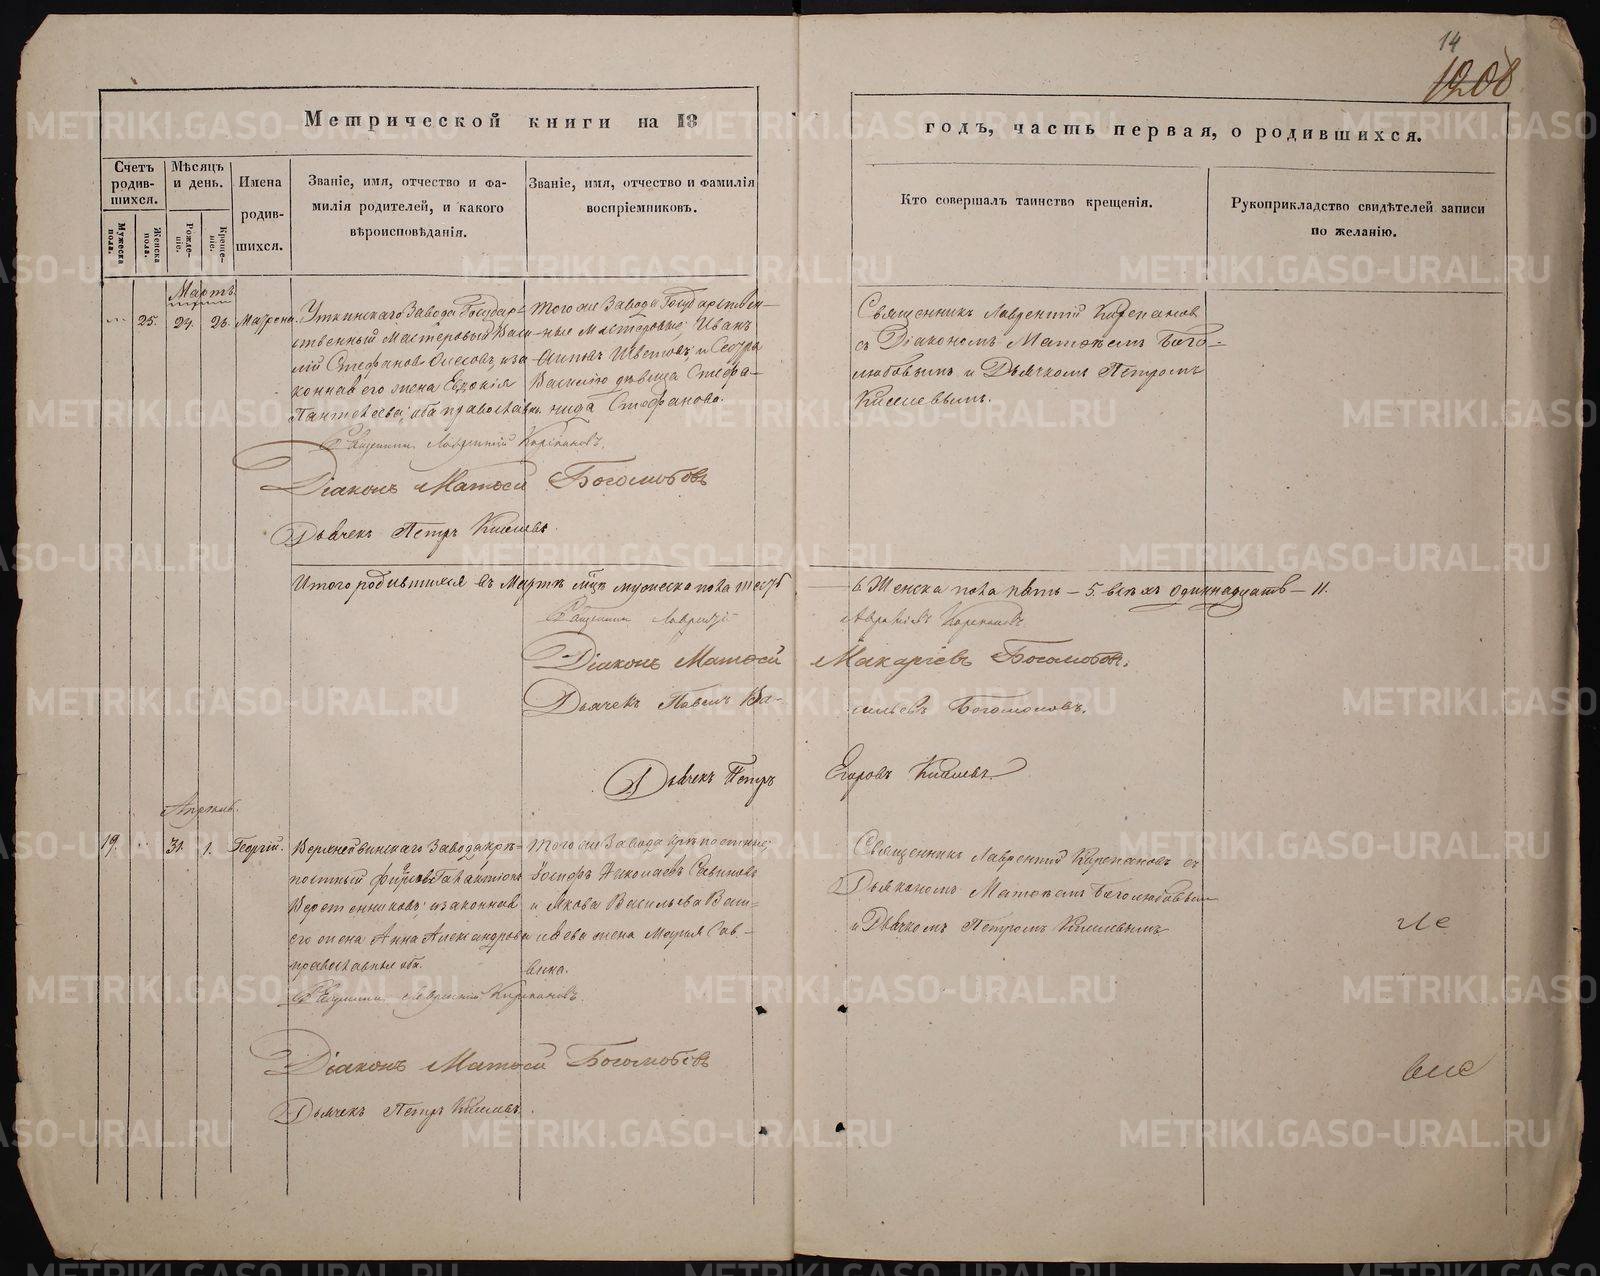 14
1208
Метрической книги на 18
годъ, часть первая, о родившихся.
Счетъ родив- шихся.
Мѣсяцъ и день.
Имена родив- шихся.
Званіе, имя, отчество и фа- милія родителей, и какого вѣроисповѣданія.
Званіе, имя, отчество и фамилія воспріемниковъ.
Кто совершалъ таинство крещенія.
Рукоприкладство свидѣтелей записи по желанію.
Мужеска пола.
Женска пола.
Рожде- ніе.
Креще- ніе.
Мартъ
25. 24. 26. Матрона.
Уткинскаго Завода Государ-
ственный Мастеровый Васи-
лій Стефановъ
конная его жена Евдокія
Пантелѣева; оба православн.
того же Завода Государствен-
ные Мастеровые: Иванъ
и Сестра
Василію дѣвица Стефа-
нида Стефанова.
Священникъ Лаврентій Карепановъ
съ Діакономъ Матѳеемъ Бого-
любовымъ и Дьячкомъ Петромъ
Киселевымъ.
Священникъ Лаврентій Карепановъ.
Діаконъ Матѳей Боголюбовъ
Дьячекъ Петръ Киселевъ.
Итого родившихся въ Мартѣ мѣсяцѣ мужеска пола шесть
— 6. Женска пола пять — 5. всѣхъ одиннадцать — 11.
Священникъ Лаврентій
Карепановъ
Діаконъ Матѳей Макаріевъ Боголюбовъ.
Дьячекъ Павелъ Ва- сильевъ Богомоловъ.
Дьячекъ Петръ Егоровъ Киселевъ
Апрѣль.
19. 31. 1. Георгій.
Верхнейвинскаго Завода крѣ-
постный
Веретенниковъ и законная
его жена Анна Александрова
православные оба.
того же Завода крѣпостные:
Іосифъ Николаевъ Савиновъ
и Якова Васильева
жена Марья Сав-
вина.
Священникъ Лаврентій Карепановъ съ
Дьякономъ Матѳеемъ Боголюбовымъ
и Дьячкомъ Петромъ Киселевымъ
Священникъ Лаврентій Карепановъ.
Діаконъ Матѳей Боголюбовъ
Дьячекъ Петръ Киселевъ.
METRIKI.GASO-URAL.RU